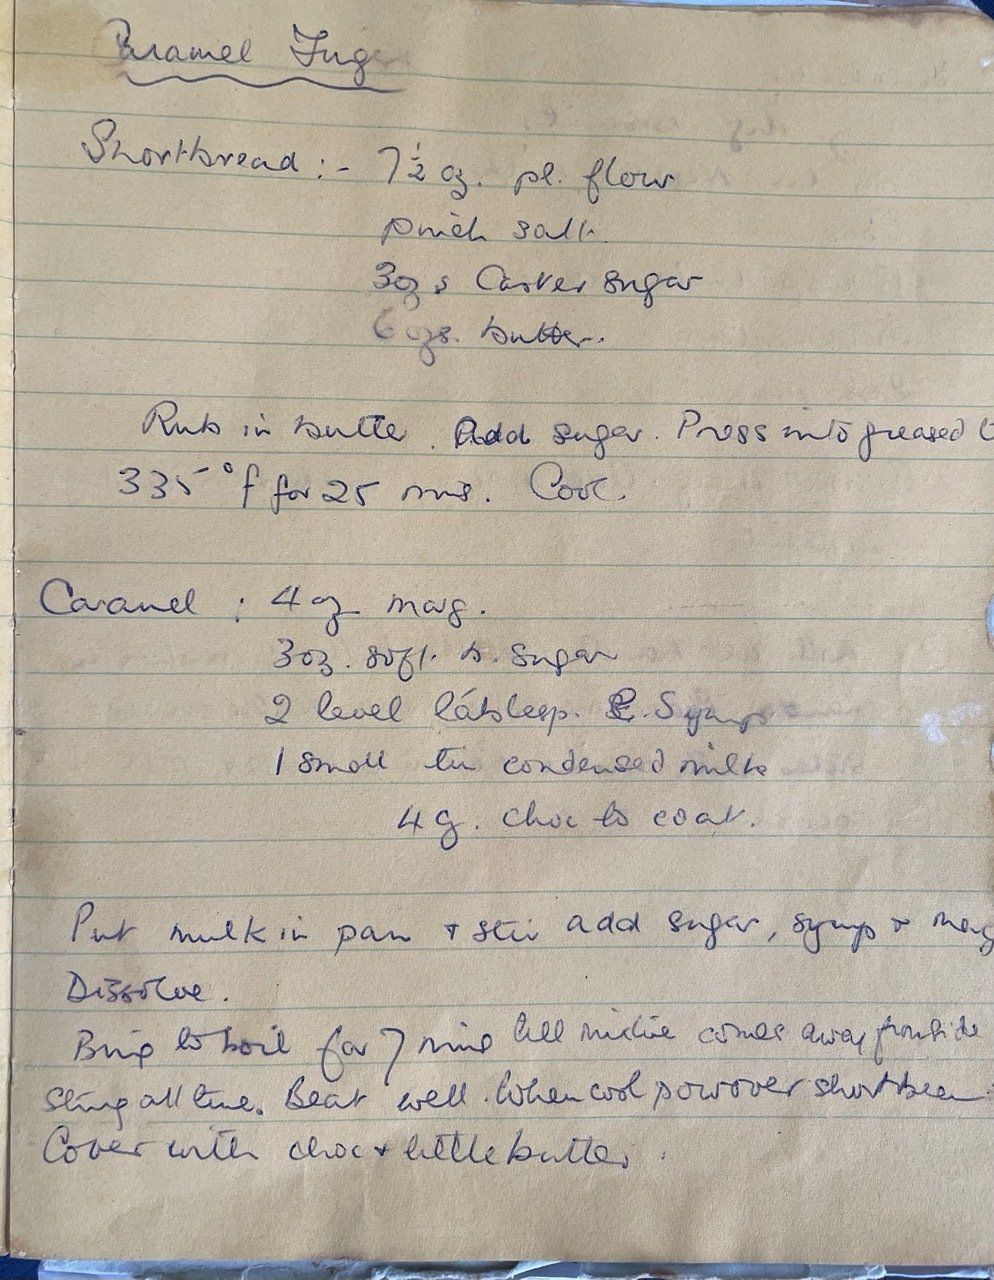 Caramel Fing
Shortbread :- 7½ oz. pl. flour
pinch salt.
3ozs Caster sugar
6 ozs. butter.
Rub in butter. Add sugar. Press into greased
335°f for 25 mins. Cool.
Caramel : 4 oz marg.
3oz. soft. b. sugar
2 level tablesp. G. Syrup
1 small tin condensed milk
4 oz. choc to coat.
Put milk in pan + stir add sugar, syrup + marg
Dissolve.
Bring to boil for 7 mins till mixture comes away from side
string all time. Beat well. When cool pour over shortbread
Cover with choc + little butter.